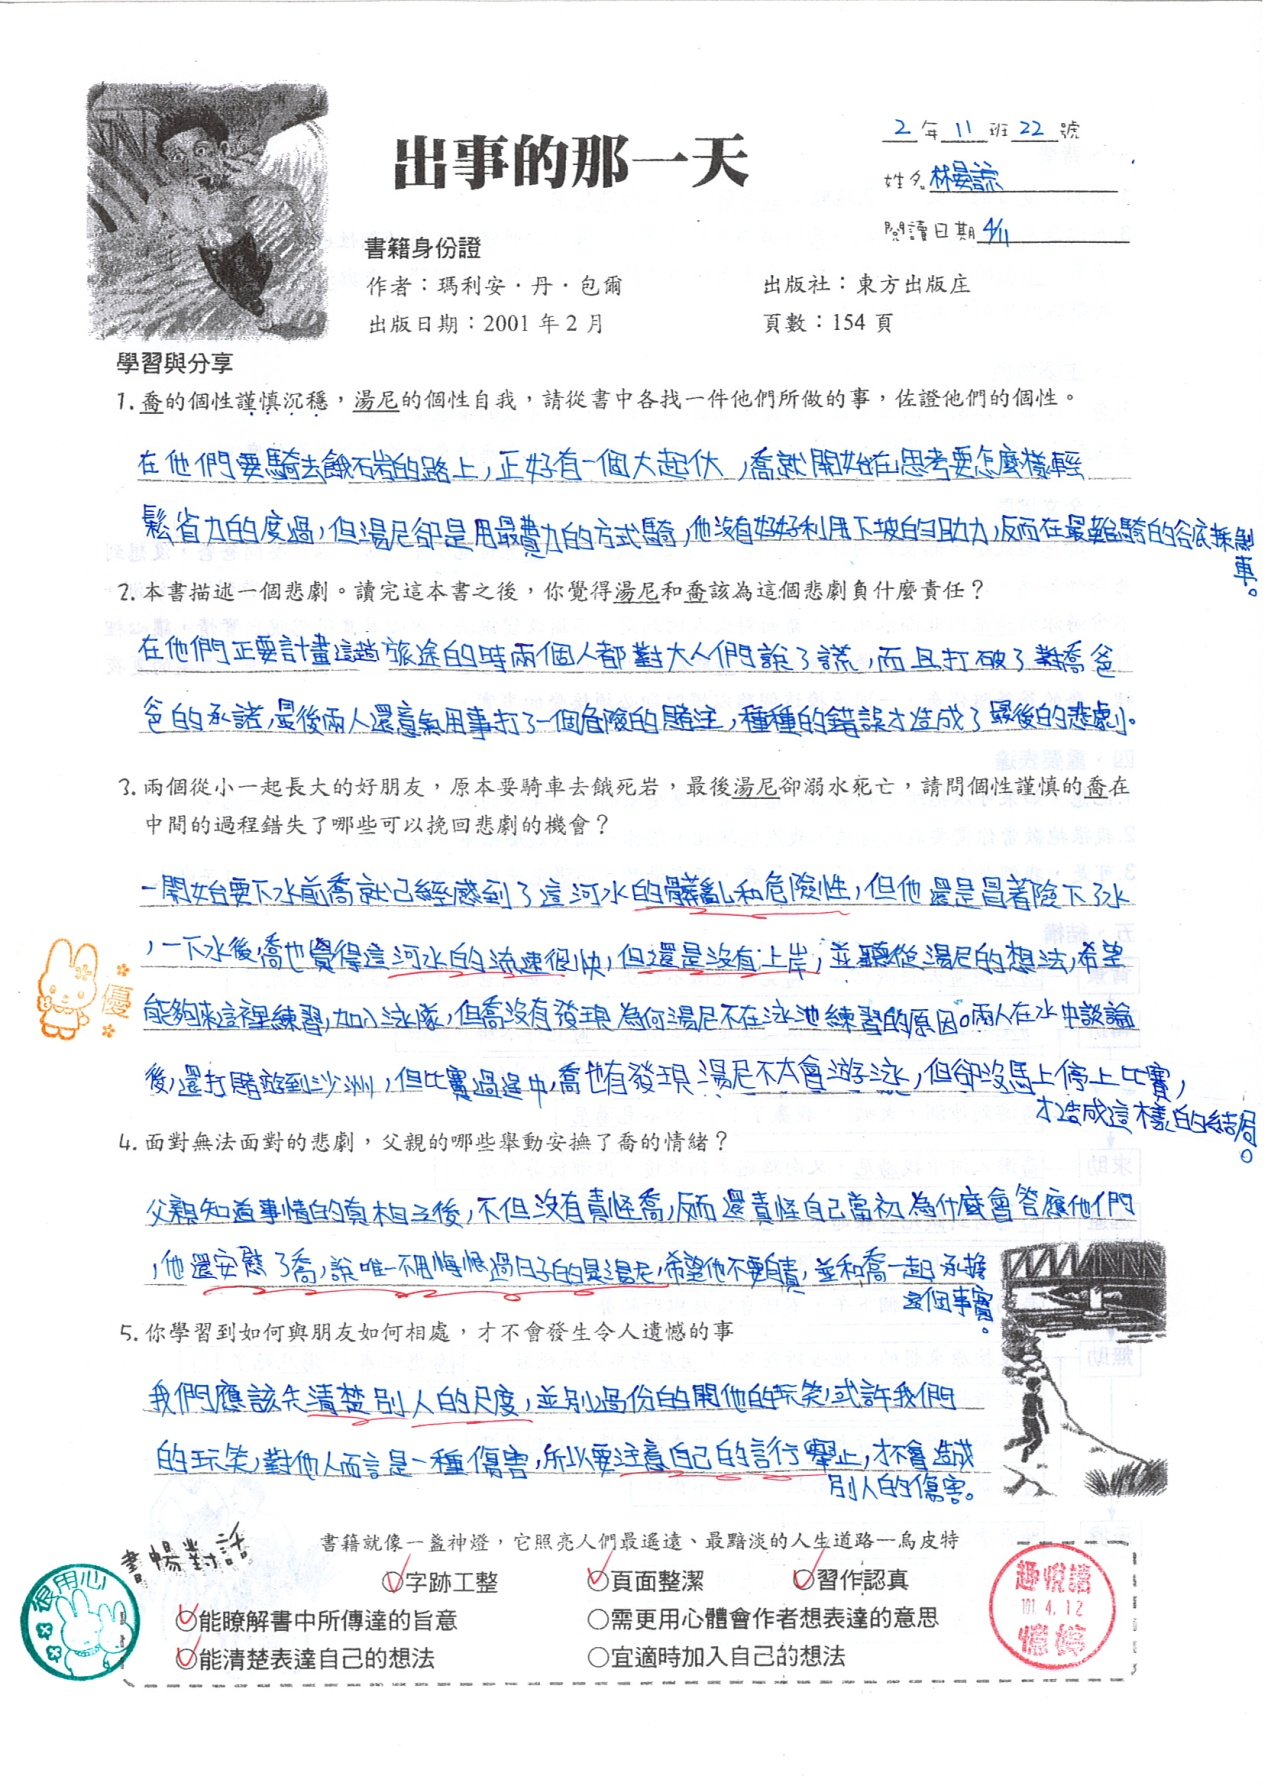 出事的那一天
2年11班22號
姓名林晏諒
閱讀日期4/11
書籍身份證
作者：瑪利安·丹·包爾
出版社：東方出版庄
出版日期：2001年2月
頁數：154頁
學習與分享
1.喬的個性謹慎沉穩，湯尼的個性自我，請從書中各找一件他們所做的事，佐證他們的個性。
在他們要騎去餓石岩的路上，正好有一個大起伏，喬就開始在思考要怎麼樣輕
鬆省力的度過，但湯尼卻是用最費力的方式騎，他沒有好好利用下坡的助力，反而在最難騎的谷底採煞
車。
2.本書描述一個悲劇。讀完這本書之後，你覺得湯尼和喬該為這個悲劇負什麼責任？
在他們正要計畫這趟旅途的時兩個人都對大人們說了謊，而且打破了對喬爸
爸的承諾，最後兩人還意氣用事打了一個危險的賭注，種種的錯誤才造成了最後的悲劇。
3.兩個從小一起長大的好朋友，原本要騎車去餓死岩，最後湯尼卻溺水死亡，請問個性謹慎的喬在
中間的過程錯失了哪些可以挽回悲劇的機會？
一開始要下水前喬就已經感到了這河水的髒亂和危險性，但他還是冒著險下了水
，一下水後，喬也覺得這河水的流速很快，但還是沒有上岸，並聽從湯尼的想法，希望
能夠來這裡練習，加入泳隊，但喬沒有發現為何湯尼不在泳池練習的原因。兩人在水中談論
後，還打賭游到沙洲，但比賽過程中，喬也有發現湯尼不太會游泳，但卻沒馬上停止比賽，
才造成這樣的結局。
優
4.面對無法面對的悲劇，父親的哪些舉動安撫了喬的情緒？
父親知道事情的真相之後，不但沒有責怪喬，反而還責怪自己當初為什麼會答應他們
，他還安慰了喬，說唯一不用悔恨過日子的是湯尼，希望他不要自責，並和喬一起承擔
這個事實。
5.你學習到如何與朋友如何相處，才不會發生令人遺憾的事
我們應該先清楚別人的尺度，並別過份的開他的玩笑，或許我們
的玩笑，對他人而言是一種傷害，所以要注意自己的言行舉止，才不會造成
別人的傷害。
書籍就像一盞神燈，它照亮人們最遙遠、最黯淡的人生道路—烏皮特
書暢對話
字跡工整
頁面整潔
習作認真
能瞭解書中所傳達的旨意
需更用心體會作者想表達的意思
能清楚表達自己的想法
宜適時加入自己的想法
很用心
趣悅讀
101.4.12
憶婷